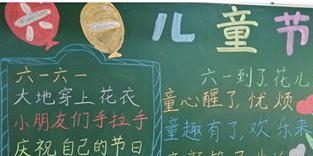 六一儿童节
六一六一
大地穿上花衣
小朋友们手拉手
庆祝自己的节日
六一到了花儿
童心醒了,忧烦
童趣有了,欢乐来